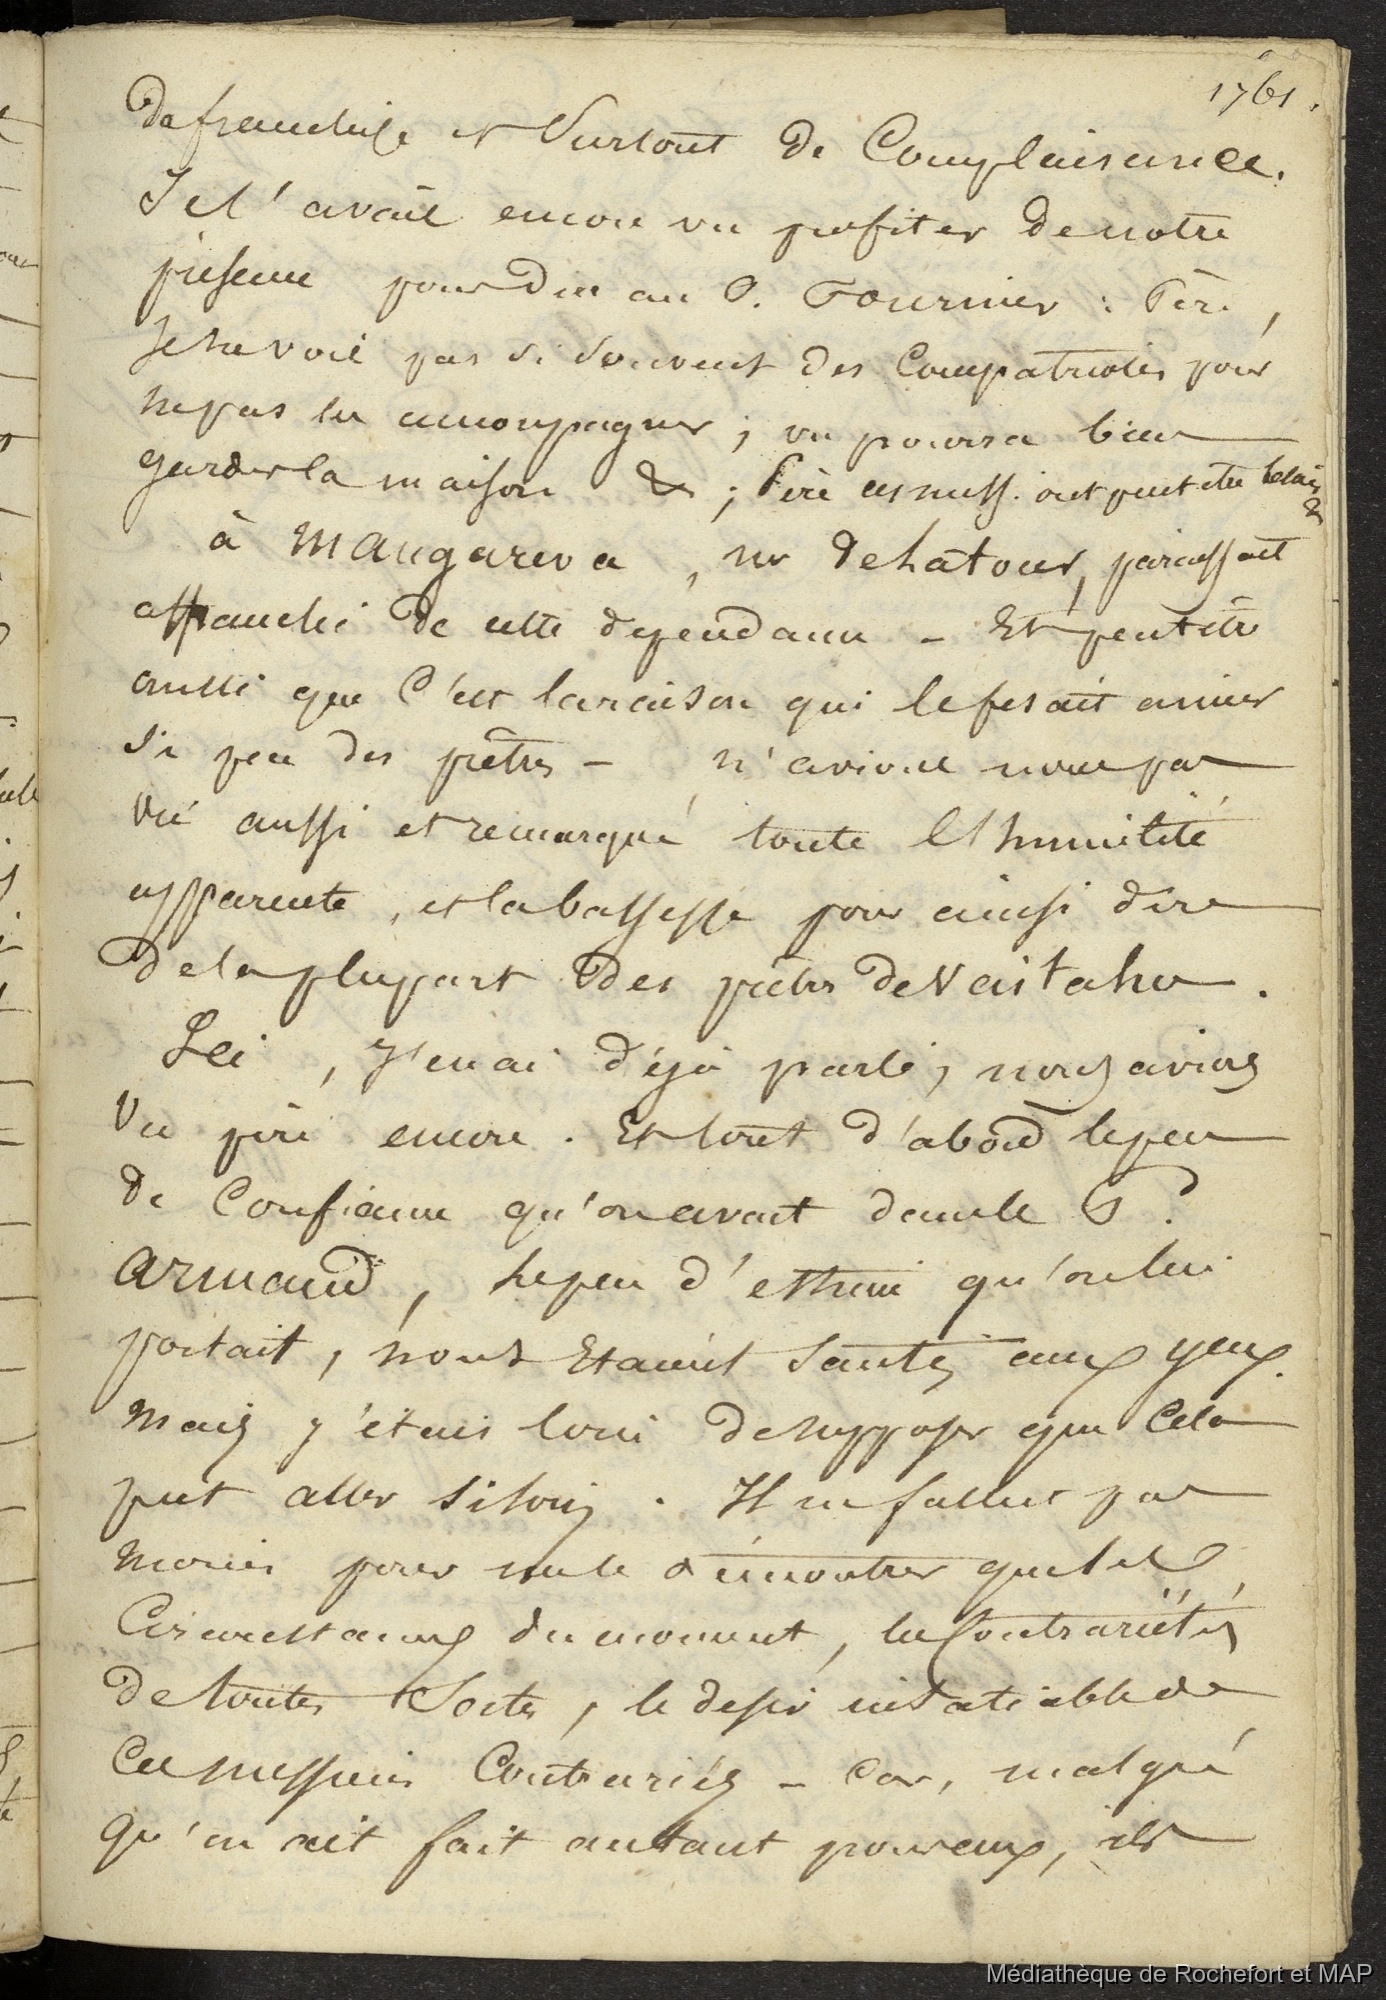 1761.
De franchise et Surtout de Complaisance.
Je l'avais encore vu profiter de notre
présence pour dire au P. Fournier : Père,
Je ne vois pas si Souvent des Compatriotes pour
ne pas les accompagner ; on pourra bien
garder la maison & ; Père ces mess. ont peut etre
à Mangareva, Mr de Latour, paraissait
affranchi de cette dependance - Et peut être
aussi que C'est la raison qui le fesait aimer
Si peu des prêtres - N'avions nous pas
Vu aussi et remarqué toute l'humilité
apparente, et la bassesse pour ainsi dire
de la plupart des prêtres de Vaitahu.
Ici, J'en ai déjà parlé, nous avions
Vu pire encore. Et tout d'abord le peu
de Confiance qu'on avait dans le P.
Armand, le peu d'estime qu'on lui
portait, nous Etaient Sautés aux yeux.
Mais j'étais loin de supposer que Cela
put aller si loin. Il ne fallut pas
moins pour me le démontrer que les
Circonstances du moment, les Contrariétés
de toutes Sortes, le desir insatiable de
Ces messieurs Contrariés - Car, malgré
qu'on eut fait autant pour eux, ils
Médiathèque de Rochefort et MAP